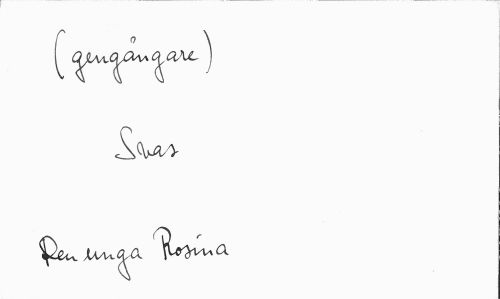 (gengångare)
Svas
Den unga Rosina